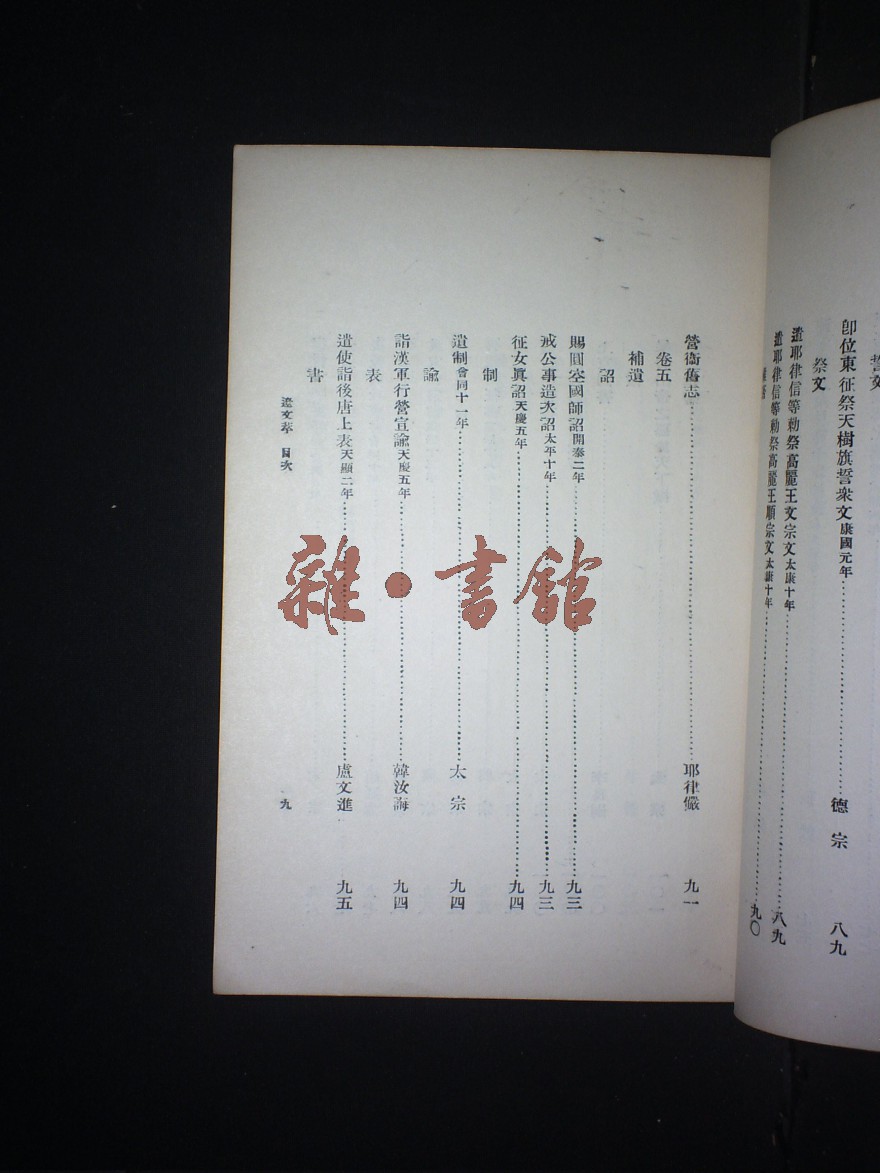 誓文
卽位東征祭天樹旗誓衆文康國元年……德宗 八九
祭文
遣耶律信等勅祭高麗王文宗文太康十年……八九
遣耶律信等勅祭高麗王順宗文太康十年……九〇
營衞舊志……耶律儼 九一
卷五
補遺
詔
賜圓空國師詔開泰二年……九三
戒公事造次詔太平十年……九三
征女眞詔天慶五年……九四
制
遺制會同十一年……太宗 九四
諭
詣漢軍行營宣諭天慶五年……韓汝誨 九四
表
遣使詣後唐上表天顯二年……盧文進 九五
書
遼文萃 目次
九
雜·書館